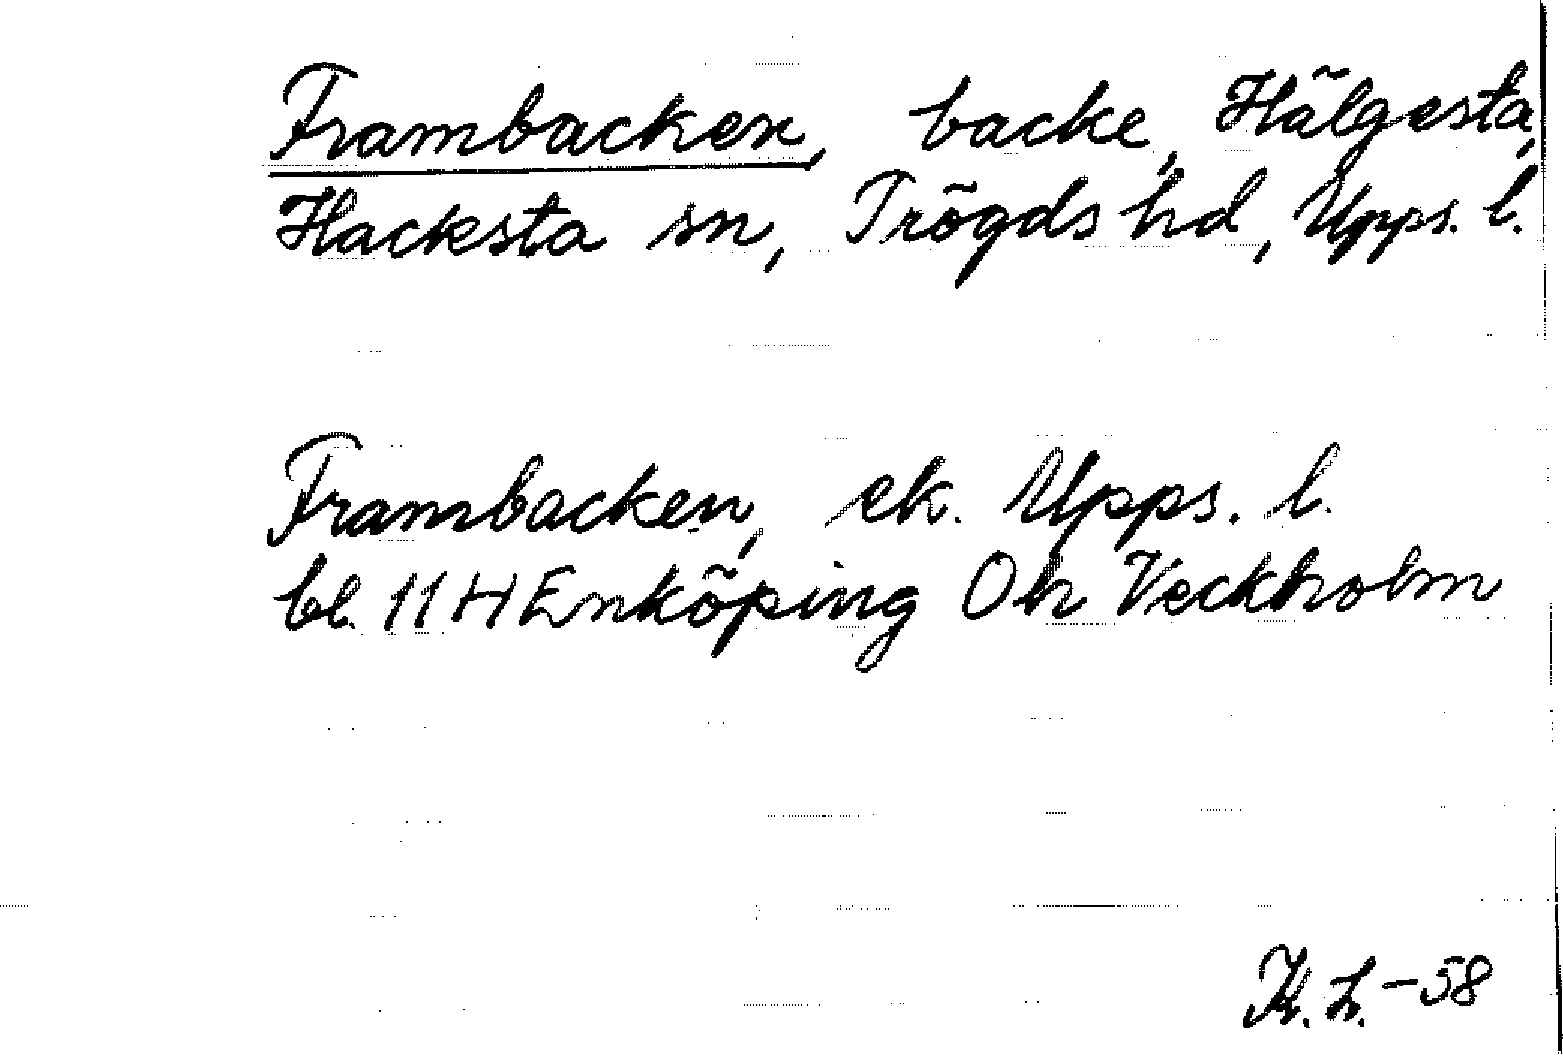 Frambacken, backe, Hälgesta,
Hacksta sn, Trögds hd, Upps. l.
Frambacken, ek. Upps. l.
bl. 11 H Enköping Oh Veckholm
K. L. -58